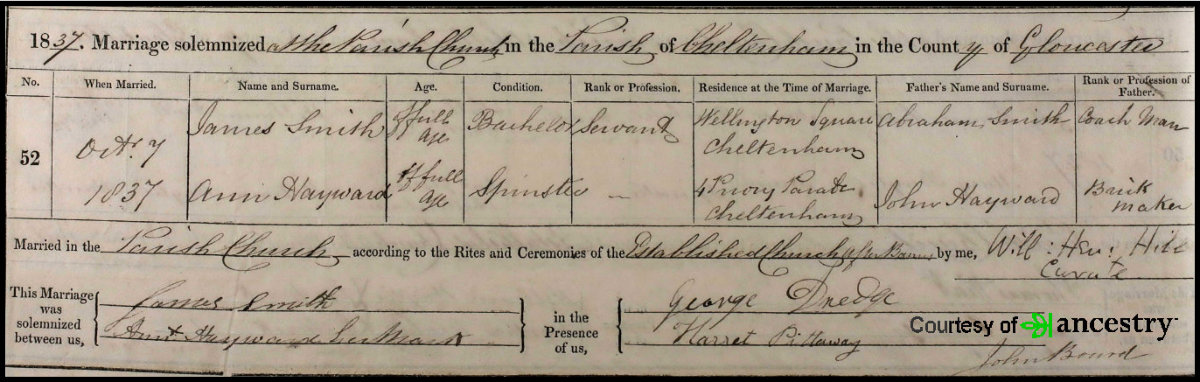 1837. Marriage solemnized at the Parish Church in the Parish of Cheltenham in the County of Gloucester
No. When Married. Name and Surname. Age. Condition. Rank or Profession. Residence at the Time of Marriage. Father's Name and Surname. Rank or Profession of Father.
52
Octr. 7
1837
James Smith
Of full
age
Bachelor
Servant
Wellington Square
Cheltenham
Abraham Smith
Coach Man
Ann Hayward
Of full
age
Spinster
—
4 Priory Parade
Cheltenham
John Hayward
Brick
maker
Married in the Parish Church according to the Rites and Ceremonies of the Established Church after Banns by me, Will: Hen: Hill
Curate
This Marriage
was
solemnized
between us,
James Smith
Ann Hayward her Mark
in the
Presence
of us,
George Dredge
Harret Pittaway
John Bound
Courtesy of ancestry